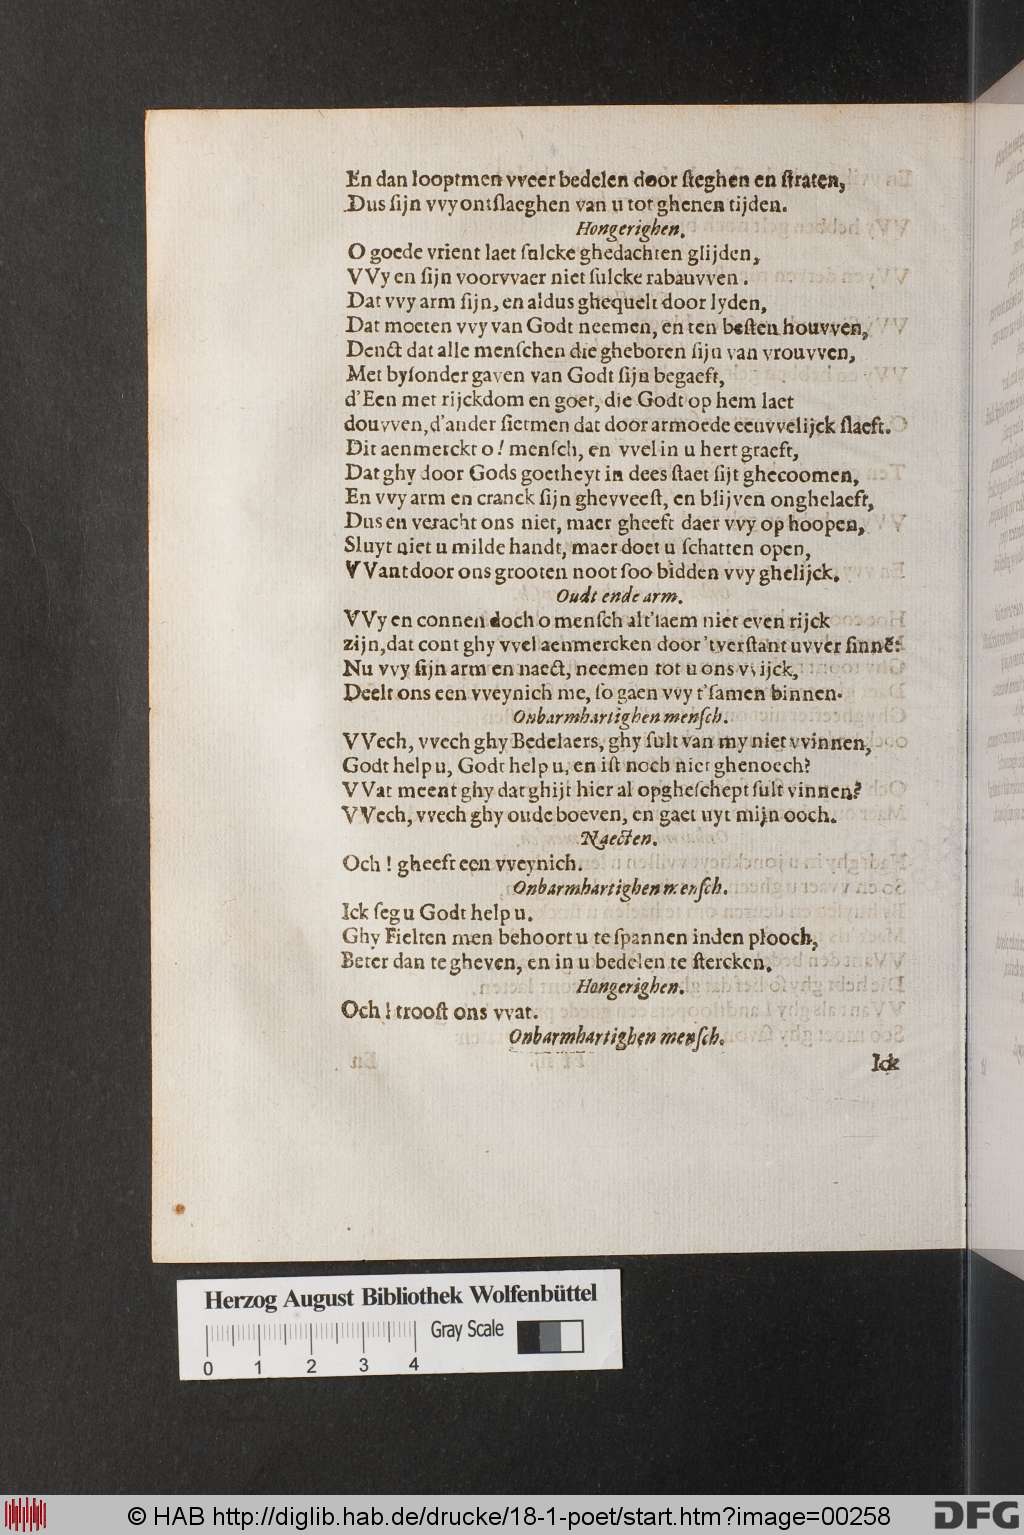 En dan looptmen vveer bedelen door ſteghen en ſtraten,
Dus ſijn vvy ontſlaeghen van u tot ghenen tijden.
Hongerighen.
O goede vrient laet ſulcke ghedachten glijden,
VVy en ſijn voorvvaer niet ſulcke rabauvven.
Dat vvy arm ſijn, en aldus ghequelt door lyden,
Dat moeten vvy van Godt neemen, en ten beſten houvven,
Denct dat alle menſchen die gheboren ſijn van vrouvven,
Met byſonder gaven van Godt ſijn begaeft,
d'Een met rijckdom en goet, die Godt op hem laet
douvven, d'ander ſietmen dat door armoede eeuvvelijck ſlaeft.
Dit aenmerckt o! menſch, en vvel in u hert graeft,
Dat ghy door Gods goetheyt in dees ſtaet ſijt ghecoomen,
En vvy arm en cranck ſijn ghevveeſt, en blijven onghelaeft,
Dus en veracht ons niet, maer gheeft daer vvy op hoopen,
Sluyt niet u milde handt, maer doet u ſchatten open,
VVant door ons grooten noot ſoo bidden vvy ghelijck.
Oudt ende arm.
VVy en connen doch o menſch alt'ſaem niet even rijck
zijn, dat cont ghy vvel aenmercken door 'tverſtant uvver ſinnē:
Nu vvy ſijn arm en naect, neemen tot u ons vvijck,
Deelt ons een vveynich me, ſo gaen vvy t'ſamen binnen.
Onbarmhartighen menſch.
VVech, vvech ghy Bedelaers, ghy ſult van my niet vvinnen,
Godt help u, Godt help u, en iſt noch niet ghenoech?
VVat meent ghy dat ghijt hier al opgheſchept ſult vinnen?
VVech, vvech ghy oude boeven, en gaet uyt mijn ooch.
Naecten.
Och! gheeft een vveynich.
Onbarmhartighen menſch.
Ick ſeg u Godt help u.
Ghy Fielten men behoort u te ſpannen inden plooch,
Beter dan te gheven, en in u bedelen te ſtercken.
Hongerighen.
Och! trooſt ons vvat.
Onbarmhartighen menſch.
Ick
Herzog August Bibliothek Wolfenbüttel
Gray Scale
0 1 2 3 4
© HAB http://diglib.hab.de/drucke/18-1-poet/start.htm?image=00258
DFG